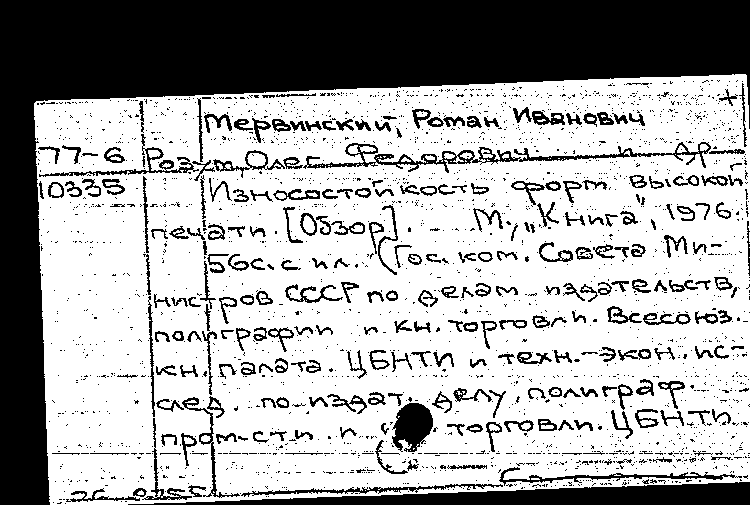 +
Мервинский, Роман Иванович
77-6 Розум, Олег Федорович и др
10335 Износостойкость форм высокой
печати. [Обзор]. М., „Книга", 1976.
56с. с ил. (Гос. ком. Совета Ми-
нистров СССР по делам издательств,
полиграфии и кн. торговли. Всесоюз.
кн. палата. ЦБНТИ и техн.-экон. ис-
след. по издат. делу, полиграф.
пром-сти и торговли. ЦБНТИ